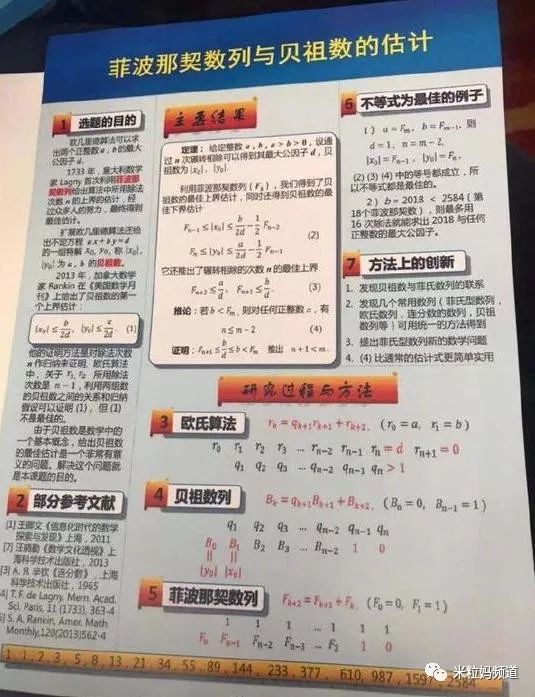 菲波那契数列与贝祖数的估计
1 选题的目的
欧几里德算法可以求
出两个正整数 a , b 的最大
公因子 d .
1733 年，意大利数学
家 Lagny 首次利用菲波那
契数列给出算中所用除法
次数 n 的上界的估计，经
过众多人的努力，最终得到
最佳估计。
扩展欧几里德算法还给
出不定方程 ax+by=d
的一组特解 x₀, y₀, 称 |x₀|,
|y₀| 为 a , b 的贝祖数。
2013 年，加拿大数学
家 Rankin 在《美国数学月
刊》上给出了贝祖数的第一
个上界估计：
|x₀| ≤ b/2d, |y₀| ≤ a/2d. (1)
他的证明方法是对除法次数
n 作归纳来证明. 欧氏算法
中，关于 r₁, r₂ 所用除法
次数是 n − 1，利用两组数
的贝祖数之间的关系和归纳
假设可以证明 (1)，但 (1)
不是最佳的。
由于贝祖数是数学中的
一个基本概念，给出贝祖数
的最佳估计是一个非常有意
义的问题。解决这个问题就
是本课题的目的。
2 部分参考文献
[1] 王卿文《信息化时代的数学
探索与发现》上海，2011
[2] 汪晓勤《数学文化透视》上
海科学技术出版社，2013
[3] А. Я. 辛钦《连分数》，上海
科学技术出版社，1965
4] T. F. de Lagny. Mem. Acad.
Sci. Paris, 11 (1733), 363-4
5] S. A. Rankin, Amer. Math.
Monthly,120(2013)562-4
主要结果
定理：给定整数 a , b , a > b > 0，设通
过 n 次辗转相除可以得到其最大公因子 d，贝
祖数为 |x₀|, |y₀|.
利用菲波那契数列 (Fₖ)，我们得到了贝
祖数的最佳上界估计，同时还得到贝祖数的最
佳下界估计
Fₙ₋₁ ≤ |x₀| ≤ b/2d − 1/2 Fₙ₋₂
(2)
Fₙ ≤ |y₀| ≤ a/2d − 1/2 Fₙ₋₁
它还推出了辗转相除的次数 n 的最佳上界
Fₙ₊₂ ≤ a/d, Fₙ₊₁ ≤ b/d. (3)
推论：若 b < Fₘ, 则对任何正整数 a，有
n ≤ m − 2 (4)
证明：Fₙ₊₁ ≤ b/d ≤ b < Fₘ 推出 n + 1 < m.
6 不等式为最佳的例子
1） a = Fₘ, b = Fₘ₋₁, 则
d = 1, n = m − 2,
|x₀| = Fₙ₋₁, |y₀| = Fₙ.
(2) (3) (4) 中的等号都成立，所
以不等式都是最佳的。
2）b = 2018 < 2584（第
18个菲波那契数），则最多用
16 次除法就能求出 2018 与任何
正整数的最大公因子。
7 方法上的创新
1. 发现贝祖数与菲氏数列的联系
2. 发现几个常用数列（菲氏型数列，
欧氏数列，连分数的数列，贝祖
数列等）可用统一的方法得到
3. 提出菲氏型数列新的数学问题
4. (4) 比通常的估计式更简单实用
研究过程与方法
3 欧氏算法 rₖ = qₖ₊₁rₖ₊₁ + rₖ₊₂, (r₀ = a, r₁ = b)
r₀ r₁ r₂ r₃ ... rₙ₋₂ rₙ₋₁ rₙ = d rₙ₊₁ = 0
q₁ q₂ q₃ ... qₙ₋₂ qₙ₋₁ qₙ > 1
4 贝祖数列 Bₖ = qₖ₊₁Bₖ₊₁ + Bₖ₊₂, (Bₙ = 0, Bₙ₋₁ = 1)
q₁ q₂ q₃ ... qₙ₋₂ qₙ₋₁ qₙ
B₀ B₁ B₂ B₃ ... Bₙ₋₂ 1 0
|| ||
|y₀| |x₀|
5 菲波那契数列 Fₖ₊₂ = Fₖ₊₁ + Fₖ, (F₀ = 0, F₁ = 1)
1 1 1 ... 1 1 1
Fₙ Fₙ₋₁ Fₙ₋₂ Fₙ₋₃ ... F₂ 1 0
1, 1, 2, 3, 5, 8, 13, 21, 34, 55, 89, 144, 233, 377, 610, 987, 1597, 2584
米粒妈频道